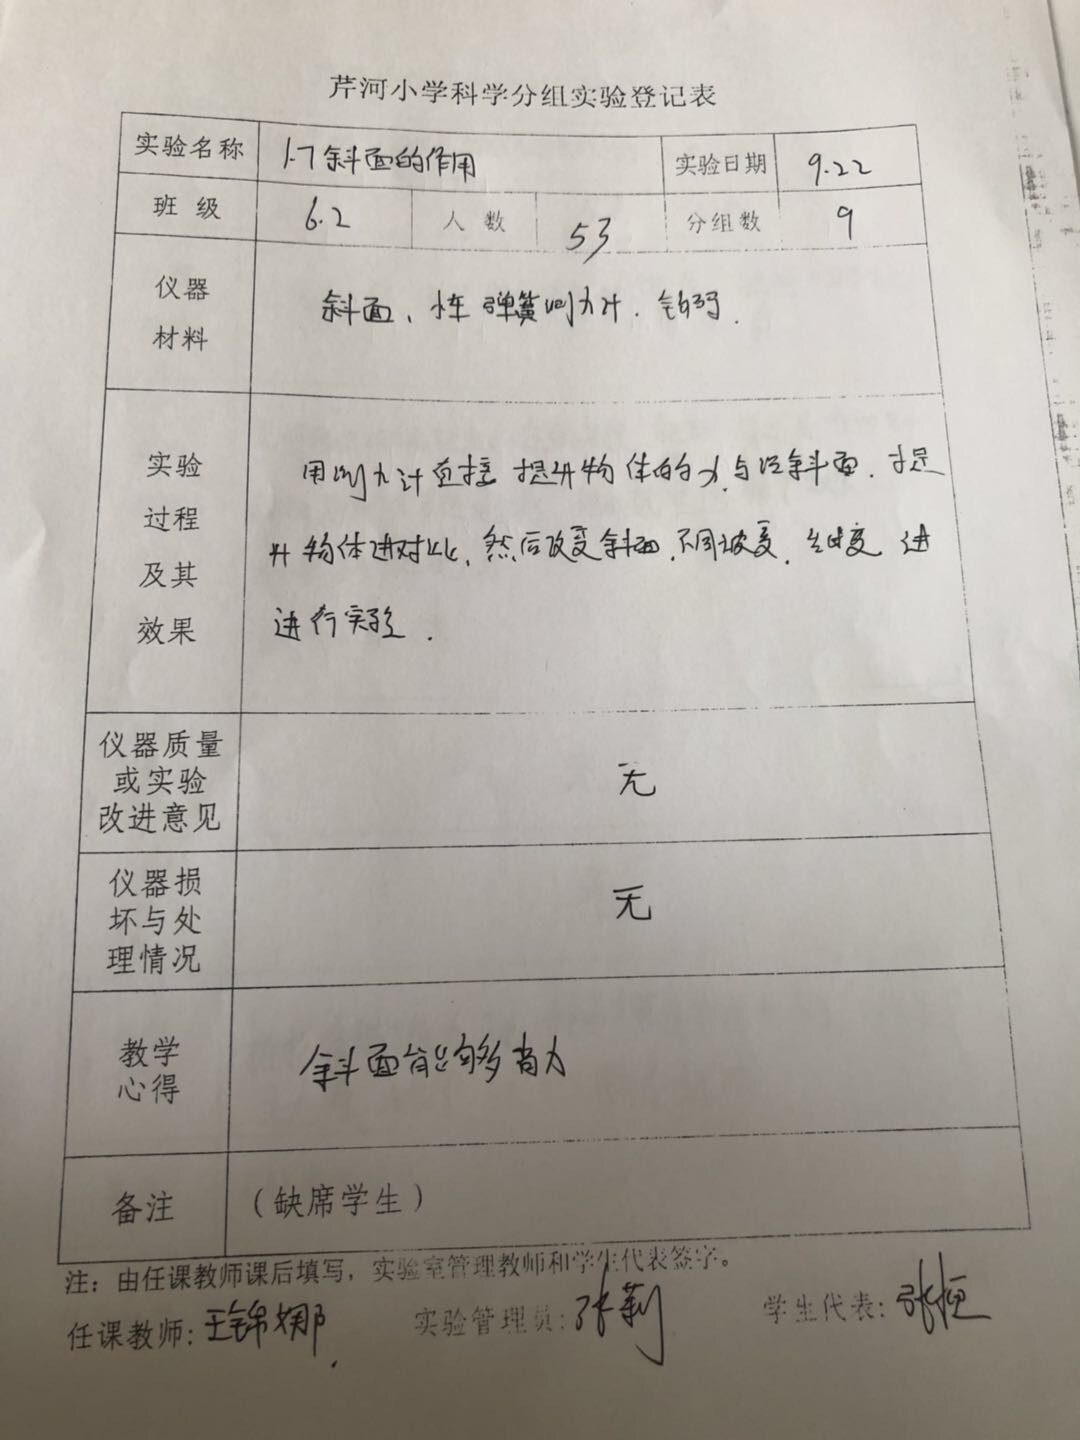 芹河小学科学分组实验登记表
实验名称 1.7斜面的作用 实验日期 9.22
班 级 6.2 人 数 53 分组数 9
仪器
材料
斜面、小车 弹簧测力计．钩码．
实验
过程
及其
效果
用测力计直接提升物体的力与沿斜面．提
升物体进对比，然后改变斜面．不同坡度． 进
进行实验．
仪器质量
或实验
改进意见
无
仪器损
坏与处
理情况
无
教学
心得
斜面能够省力
备注 （缺席学生）
注：由任课教师课后填写，实验室管理教师和学生代表签字。
任课教师：王锦娜． 实验管理员：张莉 学生代表：张恒